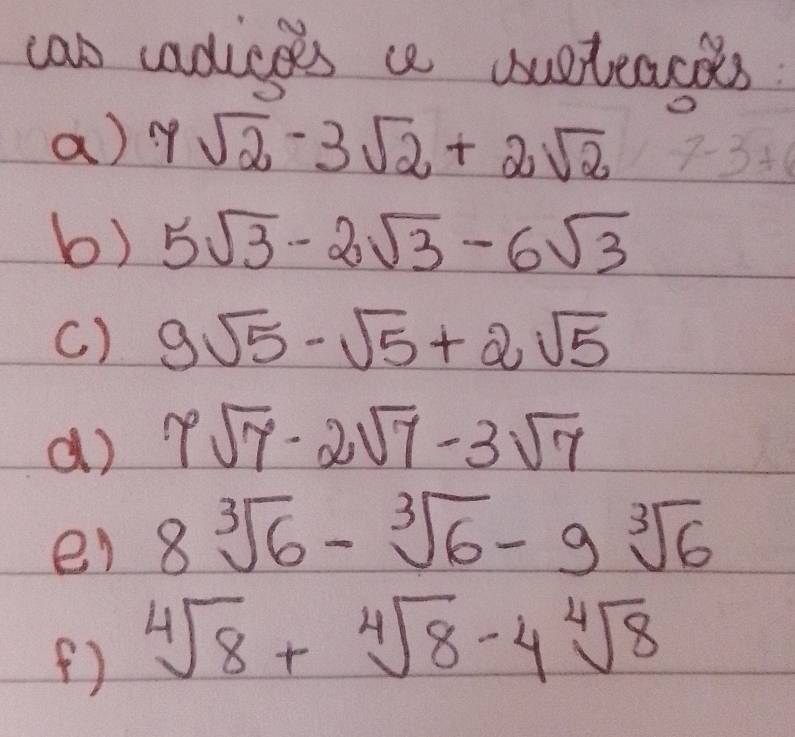 as adições e subtrações:
a) 7√2 - 3√2 + 2√2
b) 5√3 - 2√3 - 6√3
c) 9√5 - √5 + 2√5
d) 7√7 - 2√7 - 3√7
e) 8∛6 - ∛6 - 9∛6
f) ∜8 + ∜8 - 4∜8